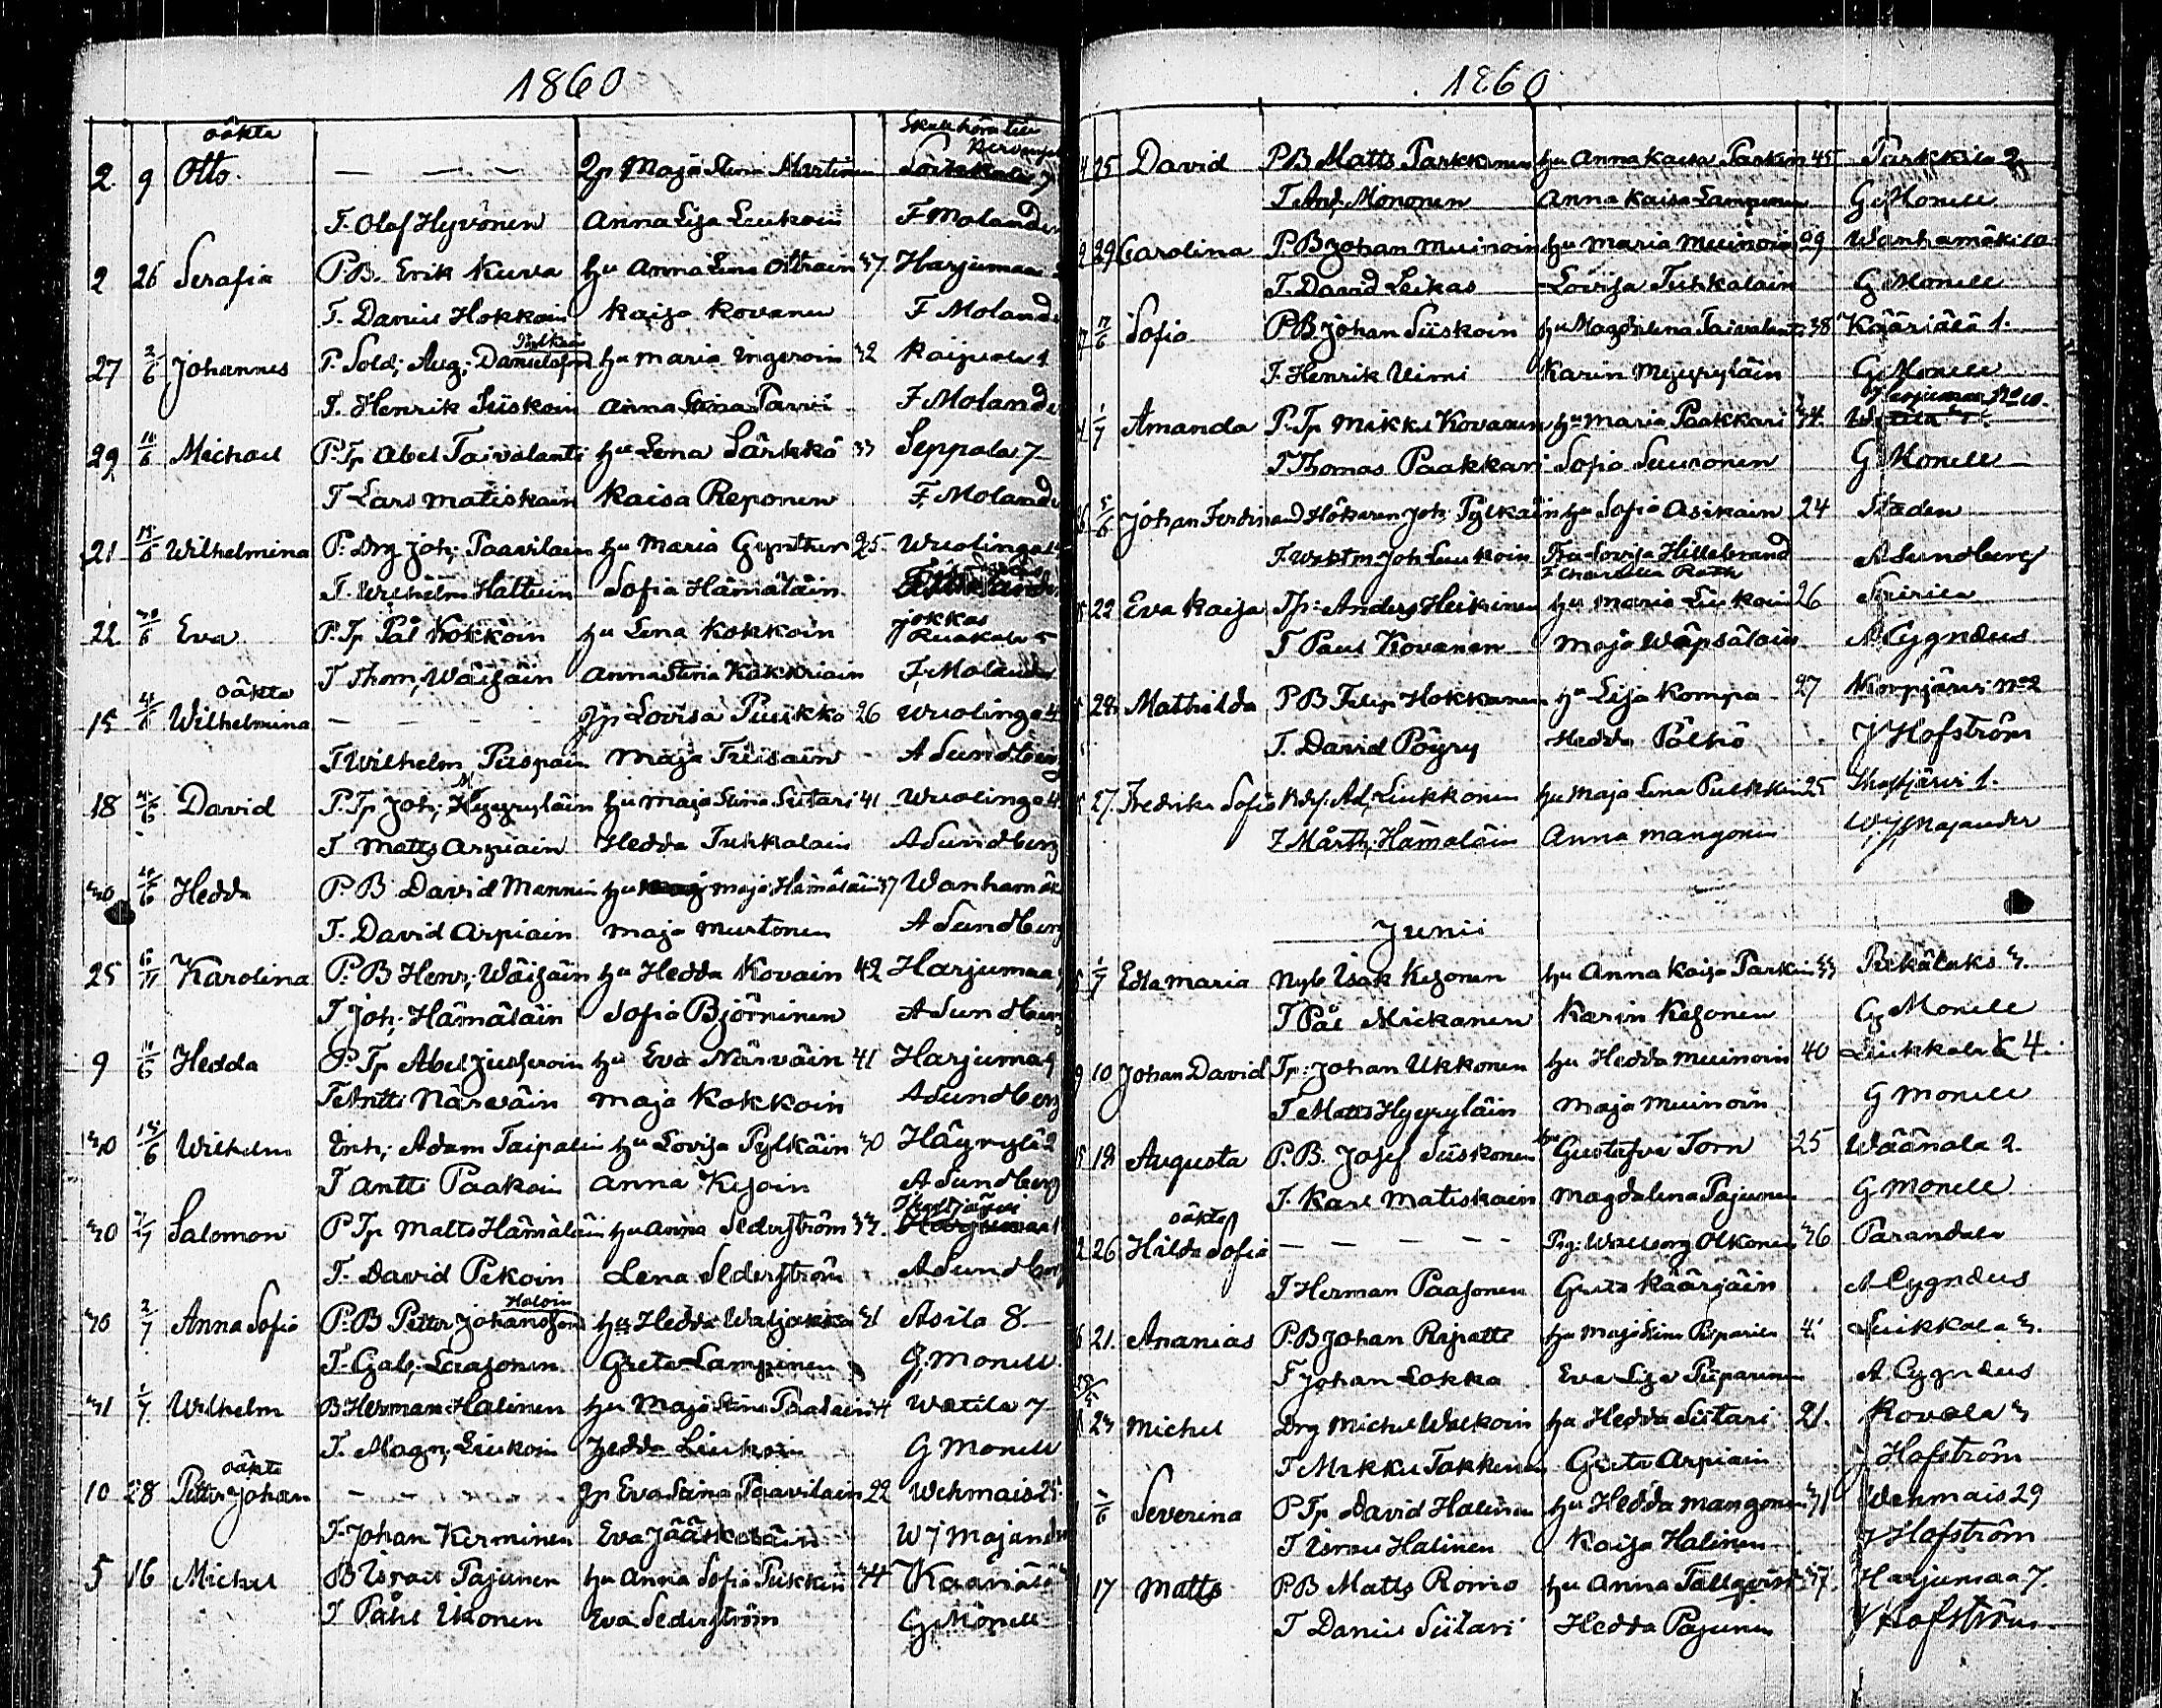 1860
oäkta Skall höra till
2 9 Otto. — — — Qp Maja Stina Martinen
T. Olof Hyvönen Anna Lisa Liukoin F Molander
2 26 Serafia P.B. Erik Kurva hu Anna Lena 37. Harjumaa
T. Daniel Hokkoin Kaisa Kovanen F Molander
27 2/6 Johannes P. Sold; Aug; Danielsson hu Maria Ingeroin 32 Kaipiala 1
T. Henrik Siiskoin Anna Stina Parvi F Molander
29 Michael P. Tp Abel Taivalanti hu Lena Särkkä 33 Seppälä 7
T Lars Matiskain Kaisa Reponen F. Molander
21 Wilhelmina P. Drg Joh; Paavilain hu Maria Gynther 25. Wuolingo
T. Wilhelm Hattuin Sofia Hämäläin
22 Eva P. Tp Pål Kokkoin hu Lena Kokkoin
T Thom; Wäisäin Anna Stina Kakkriain F. Molander
oäkta
15 Wilhelmina — — — Qp Lovisa Puukko 26 Wuolingo 4
T Wilhelm Piispain Maja Tiisain A Sundberg
18 David P. Tp Joh; Hyyryläin hu Maja Stina Siitari 41 Wuolingo 4
T Matts Arpiain Hedda Tuhkalain A Sundberg
30 Hedda P. B. David Mannin hu Maja Hämäläin 37 Wanhamäk
T. David Arpiain Maja Murtonen A Sundberg
25 Karolina P. B Henr; Wäisäin hu Hedda Kovain 42 Harjumaa
T Joh; Hämäläin Sofia Björninen A Sundberg
9 Hedda P. Tp Abel hu Eva Närväin 41 Harjumaa
T Antti Närväin Maja Kokkoin A Sundberg
30 Wilhelm Enh; Adam Taipalin hu Lovisa Pylkäin 30 Häyrylä 2
T Antti Paakoin Anna Kijoin A Sundberg
30 Salomon P Tp Matts Hämäläin hu Anna Sederström 33.
T. David Pekoin Lena Sederström A Sundberg
Haloin
30 2/7 Anna Sofia P. B Petter Johansson hu Hedda Waljakka 31 Asila 8.
T. Gab; Laasonen Greta Lampinen G. Monell
31 1/7 Wilhelm B Herman Halinen hu Maja Stina Watila 7
T. Magn; Liukoin Hedda Liukoin G Monell
oäkta
10 28 Petter Johan — — — Qp Eva Stina Paavilain 22 Wehmais 25
T. Johan Kerminen Eva Jääskeläin W J Majander
5 16 Michel B Israel Pajunen hu Anna Sofia Pukkin 44 Kääriälä
T Påhl Ukonen Eva Sederström G Monell
1860
25 David P B Matts Parkkonen hu Anna Kaisa Parkin 45 Parkkila 2
T And; Mononen Anna Kaisa Lampinen G Monell
29 Carolina P. B Johan Muinoin hu Maria Muinoin 29 Wanhamäki 10
T. David Leikas Lovisa Tuhkalain G Monell
Sofia P B Johan Siiskoin hu Magdalena Taivalanti 38 Kääriälä 1.
T. Henrik Uimi Karin Myyryläin G Monell
Harjumaa No 10.
1/7 Amanda P. Tp Mikki Kovanen hu Maria Paakkari 34.
T Thomas Paakkari Sofia Suuronen G Monell
5/6 Johan Ferdinand Hökaren Joh; Pylkäin hu Sofia Asikain 24 Staden
T. Joh Liukoin Fru Lovisa Hillebrand A Sundberg
22 Eva Kaisa Tp: Anders Heikinen hu Maria Liukoin 26
T Paul Kovanen Maja Wäpsäläin A Cygnæus
28. Mathilda P B Filip Hokkanen hu Lisa Kompa 27 Korpjärvi No 2
T. David Pöyry Hedda Pölhö J Hofström
27. Fredrika Sofia Ad; Liukkonen hu Maja Lena Pulkkin 25
T Mårth; Hämäläin Anna Mangonen W J Majander
Junii
1/7 Edla Maria Nyb Isak Kesonen hu Anna Kaisa Parkin 33
T Pål Mickanen Karin Kesonen G Monell
10 Johan David Tp: Johan Ukkonen hu Hedda Muinoin 40 Liukkala 4.
T Matts Hyyryläin Maja Muinoin G Monell
18 Augusta P. B. Josef Siiskonen hu Gustafva Torn 25 Wäänälä 2.
T. Karl Matiskain Magdalena Pajunen G Monell
oäkta
26 Hilda Sofia — — — Pig: Walborg Olkonen 36 Parandala
T Herman Paasonen Greta Käärjäin A Cygnæus
21. Ananias P. B Johan Ripatti hu Maja Stina Piiparin
T Johan Lokka Eva Lisa Piiparinen A Cygnæus
23 Michel Drg Michel Walkoin hu Hedda Siitari 21. Kovala 3
T Mikku Takkinen Greta Arpiain J Hofström
Severina P Tp David Halinen hu Hedda Mangonen 31 Wehmais 29
T Israel Halinen Kaisa Halinen J Hofström
17 Matts P. B Matts Romo hu Anna Tallqvist 37. Harjumaa 7.
T Daniel Siitari Hedda Pajunen J Hofström